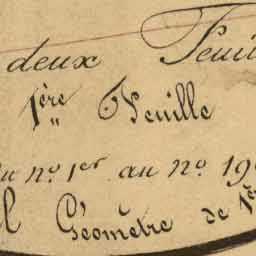 deux Feuil
1ère Feuille
du no 1er au no 19
Géomètre de 1è